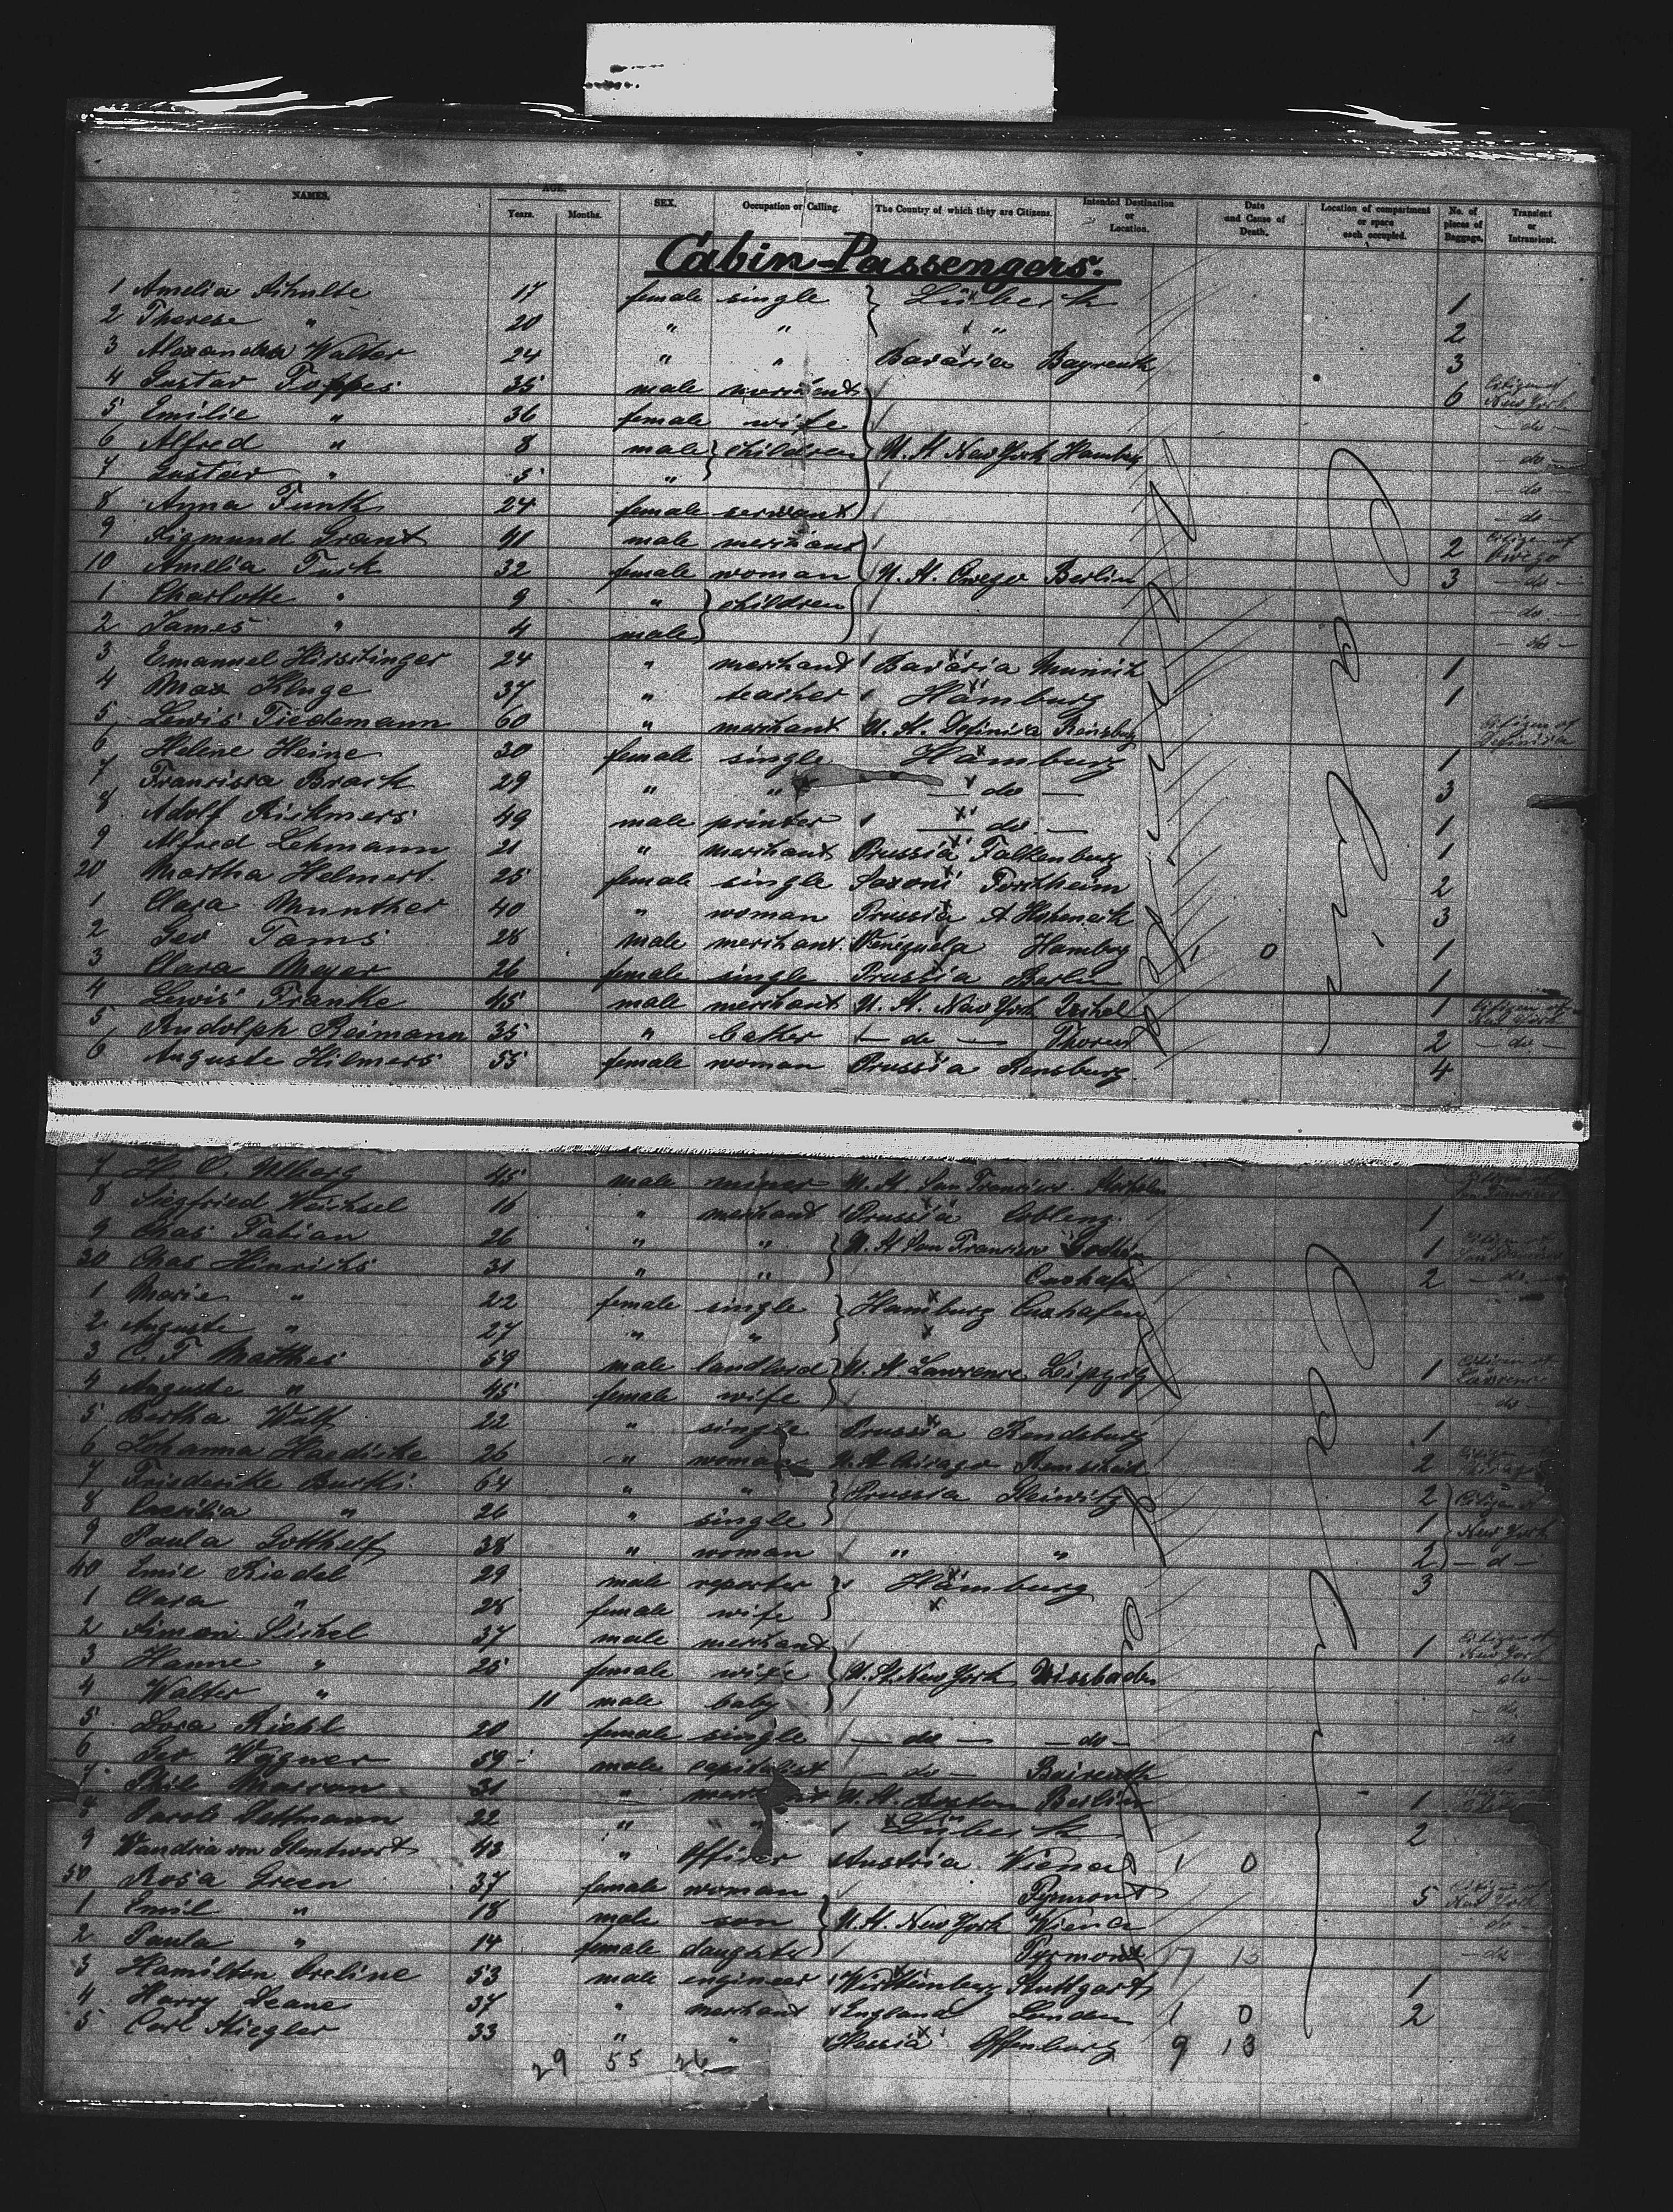 NAMES. AGE. Years. Months. SEX. Occupation or Calling. The Country of which they are Citizens. Intended Destination or Location. Date and Cause of Death. Location of compartment or space each occupied. No. of pieces of Baggage. Transient or Intransient.
Cabin-Passengers.
1 Amelia Schulte 17 female single } Lübeck 1
2 Therese " 20 " " " 2
3 Alexandra Walter 24 " " Bavaria Bayreuth 3
4 Gustav Foppes 35 male merchant 6 Citizen of New York
5 Emilie " 36 female wife - do -
6 Alfred " 8 male } children } U. St. New York Hamburg - do -
7 Gustav " 5 " - do -
8 Anna Funk 24 female servant - do -
9 Sigmund Grant 41 male merchant 2 Citizen of Owego
10 Amelia Turk 32 female woman U. St. Owego Berlin 3 - do -
1 Charlotte " 9 " } children - do -
2 James " 4 male - do -
3 Emanuel Hirschinger 24 " merchant Bavaria Munich 1
4 Max Kluge 37 " teacher Hamburg 1
5 Lewis Tiedemann 60 " merchant U. St. Rensburg Citizen of
6 Helene Heine 30 female single Hamburg 1
7 Francisca Brach 29 " " - do - 3
8 Adolf Rickmers 49 male printer - do - 1
9 Alfred Lehmann 21 " merchant Prussia Falkenburg 1
20 Martha Helmert 25 female single Saxoni 2
1 Clara Munther 40 " woman Prussia 3
2 Geo Tams 28 male merchant Hamburg 1 0 1
3 Clara Meyer 26 female single Prussia Berlin 1
4 Lewis Franke 45 male merchant U. St. New York 1 Citizen of New York
5 Rudolph Reimann 35 " - do - 2 - do -
6 Auguste Hilmers 55 female woman Prussia Rensburg 4
7 H C 45 male miner U. St. San Francisco
8 Siegfried 16 " merchant Prussia Coblenz 1
9 Chas Fabian 26 " " } U. St San Francisco 1
30 Chas Hinrichs 31 " " Cuxhafen 2 - do -
1 Marie " 22 female single } Hamburg Cuxhafen
2 Auguste " 27 " "
3 C. F. Mathes 59 male landlord } U. St. Lawrence Leipzig 1 Citizen of Lawrence
4 Auguste " 45 female wife - do -
5 Bertha Wulf 22 " single Prussia Rendsburg 1
6 Johanna Haedicke 26 " woman U. St. Chicago Remscheid 2
7 Friederike Burki 64 " " } Prussia Gleiwitz 2 } Citizen of
8 Caecilia " 26 " single 1 New York
9 Paula Gotthelf 38 " woman " " 2 - d -
40 Emil Riedel 29 male reporter } Hamburg 3
1 Clara " 28 female wife
2 Simon Sichel 37 male merchant 1 Citizen of New York
3 Hanne " 25 female wife } U. St. New York Wiesbaden do
4 Walter " 11 male baby - do
5 Dora Riehl 20 female single - do - - do - do
6 Geo Wagner 59 male capitalist - do - Baireuth
7 31 " U. St. Boston Berlin 1
8 22 " " Lübeck 2
9 43 " Officer Austria Wiena 1 0
50 Rosa Green 37 female woman Pyrmont 5 Citizen of New York
1 Emil " 18 male son } U. St. New York Wiena - do -
2 Paula " 14 female daughter Pyrmont 17 13 - do
3 Hamilton 53 male engineer Württemberg Stuttgart 1
4 Harry Deane 37 " merchant England London 1 0 2
5 Carl Stiegler 33 " " Hessia Offenburg 9 13
29 55 26